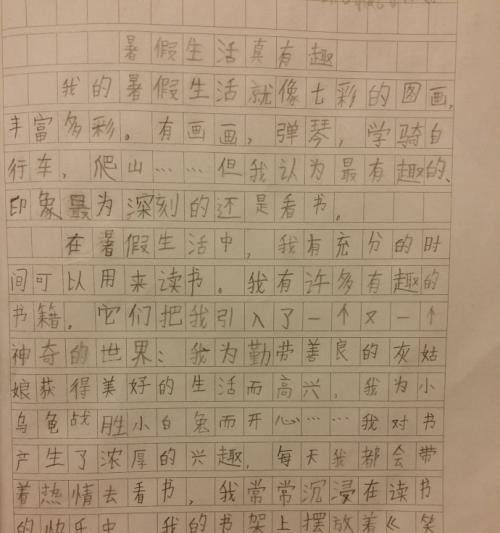 暑假生活真有趣
我的暑假生活就像七彩的图画，
丰富多彩。有画画，弹琴，学骑自
行车，爬山……但我认为最有趣的、
印象最为深刻的还是看书。
在暑假生活中，我有充分的时
间可以用来读书。我有许多有趣的
书籍，它们把我引入了一个又一个
神奇的世界：我为勤带善良的灰姑
娘获得美好的生活而高兴，我为小
乌龟战胜小白兔而开心……我对书
产生了浓厚的兴趣，每天我都会带
着热情去看书，我常常沉浸在读书
的快乐中。我的书架上摆放着《笑